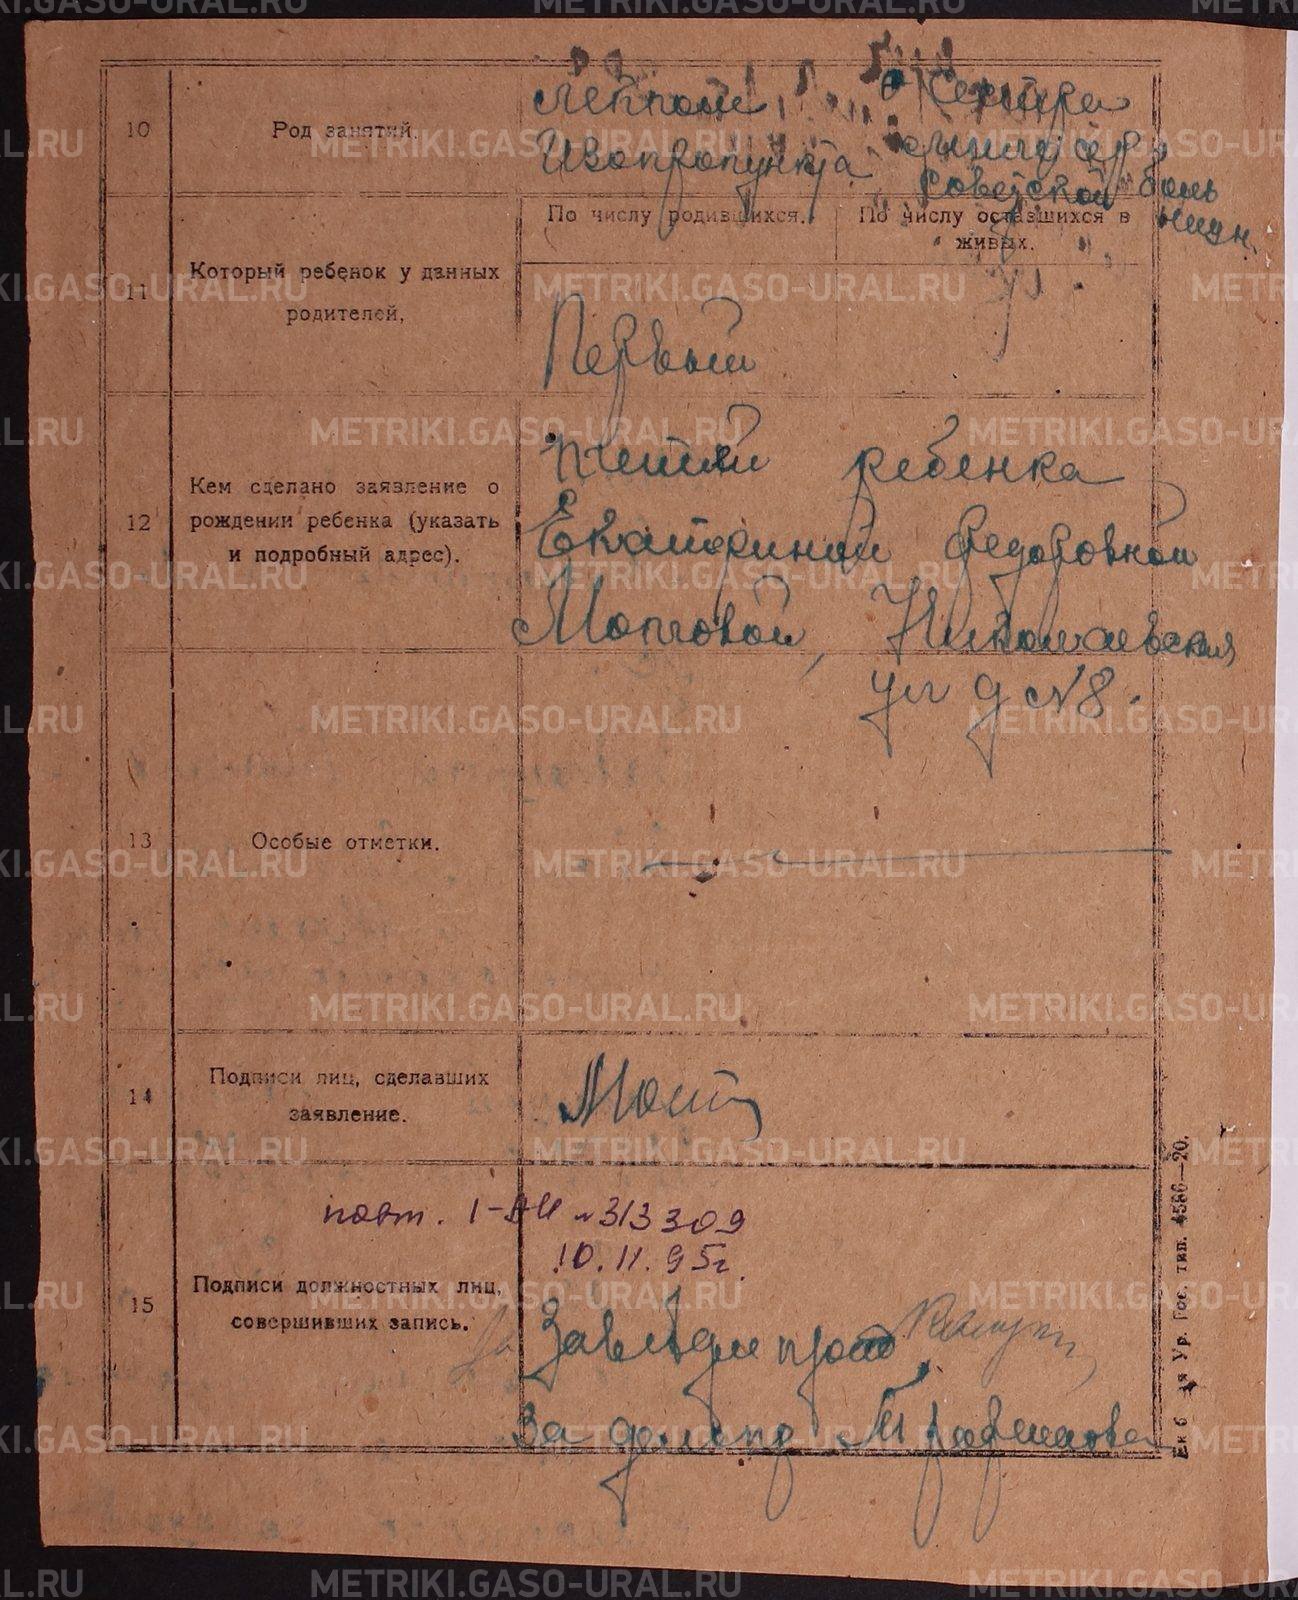 10
Род занятий.
Лекпом
Изопропункта
Сестра
милосер
Советской боль
ницы
11
Который ребенок у данных
родителей,
По числу родившихся.
По числу оставшихся в
живых.
Первый
12
Кем сделано заявление о
рождении ребенка (указать
и подробный адрес).
ребенка
Екатериной Федоровной
Николаевская
ул д №8.
13
Особые отметки.
14
Подписи лиц, сделавших
заявление.
15
Подписи должностных лиц,
совершивших запись.
повт. I-АИ №313309
10.11.95г.
За Завед
За делопр
Ур. Гос. тип. 4586—20.
METRIKI.GASO-URAL.RU